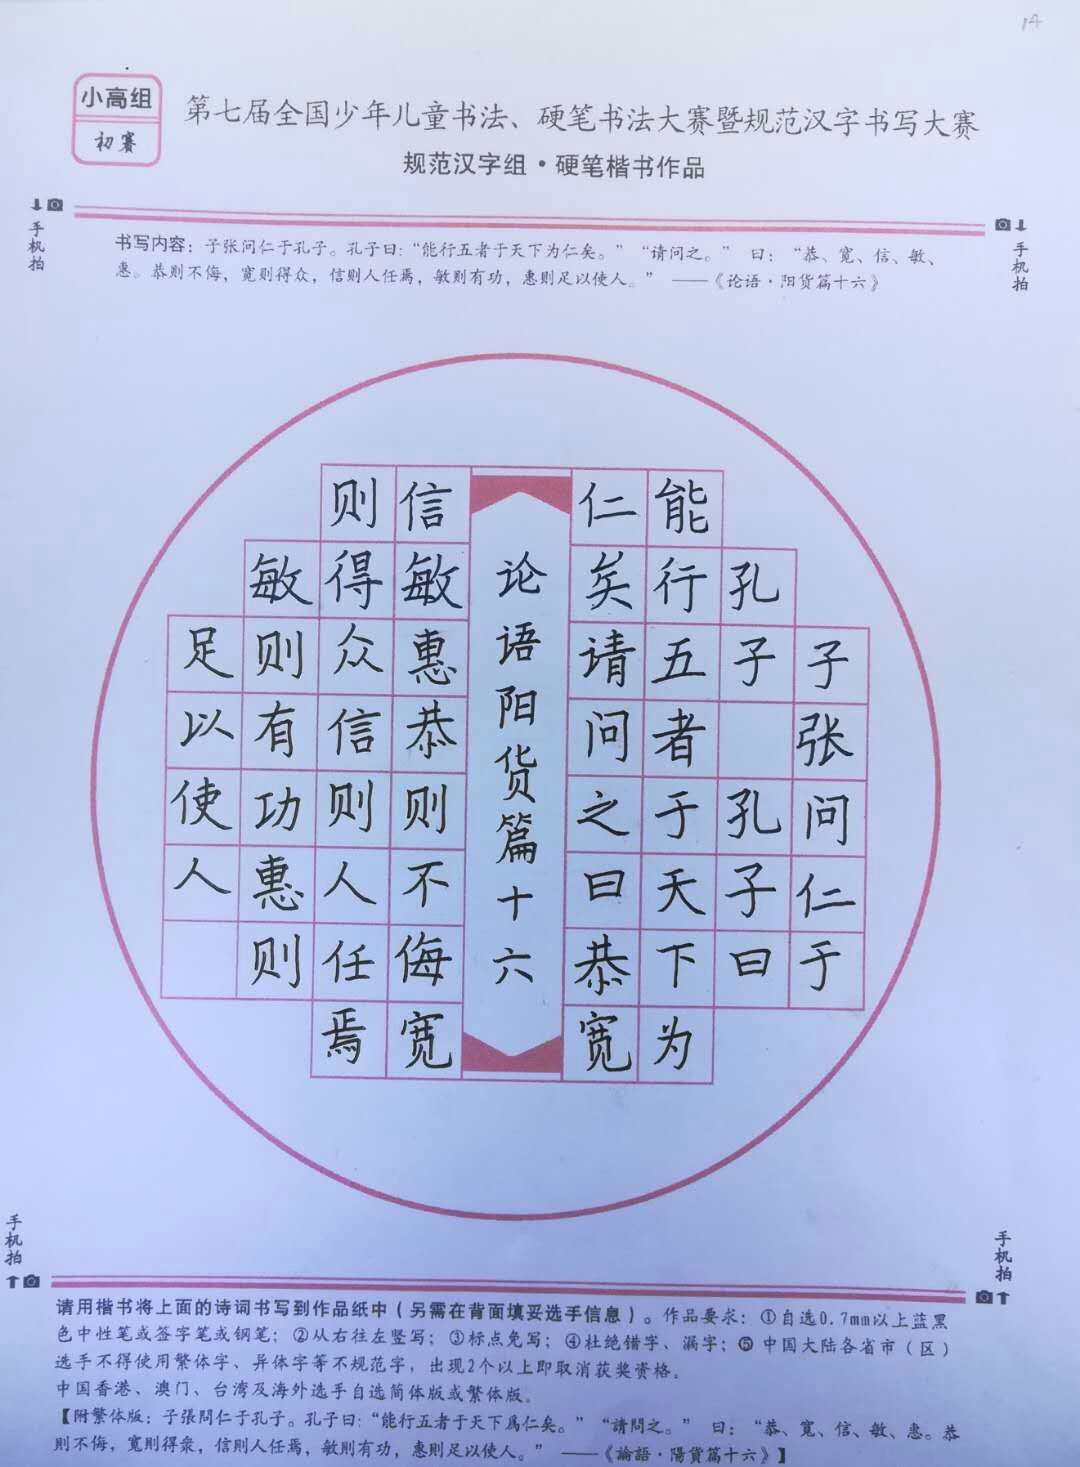 14
小高组
初赛
第七届全国少年儿童书法、硬笔书法大赛暨规范汉字书写大赛
规范汉字组·硬笔楷书作品
手机拍
手机拍
书写内容：子张问仁于孔子。孔子曰：“能行五者于天下为仁矣。”“请问之。”曰：“恭、宽、信、敏、
惠。恭则不侮，宽则得众，信则人任焉，敏则有功，惠则足以使人。”——《论语·阳货篇十六》
子张问仁于
孔子 孔子曰
能行五者于天下为
仁矣请问之曰恭宽
论语阳货篇十六
信敏惠恭则不侮宽
则得众信则人任焉
敏则有功惠则
足以使人
手机拍
手机拍
请用楷书将上面的诗词书写到作品纸中（另需在背面填妥选手信息）。作品要求：①自选0.7mm以上蓝黑
色中性笔或签字笔或钢笔；②从右往左竖写；③标点免写；④杜绝错字、漏字；⑤中国大陆各省市（区）
选手不得使用繁体字、异体字等不规范字，出现2个以上即取消获奖资格。
中国香港、澳门、台湾及海外选手自选简体版或繁体版。
【附繁体版：子張問仁于孔子。孔子曰：“能行五者于天下爲仁矣。”“請問之。”曰：“恭、寬、信、敏、惠。恭
則不侮，寬則得衆，信則人任焉，敏則有功，惠則足以使人。”——《論語·陽貨篇十六》】